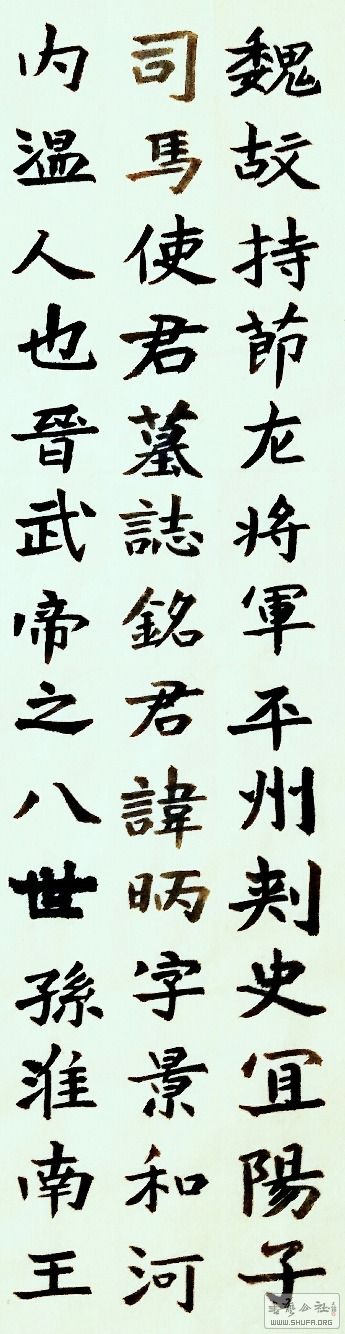 魏故持節左將軍平州刾史宜陽子
司馬使君墓誌銘君諱昞字景和河
內温人也晉武帝之八世孫淮南王
书艺公社
WWW.SHUFA.ORG